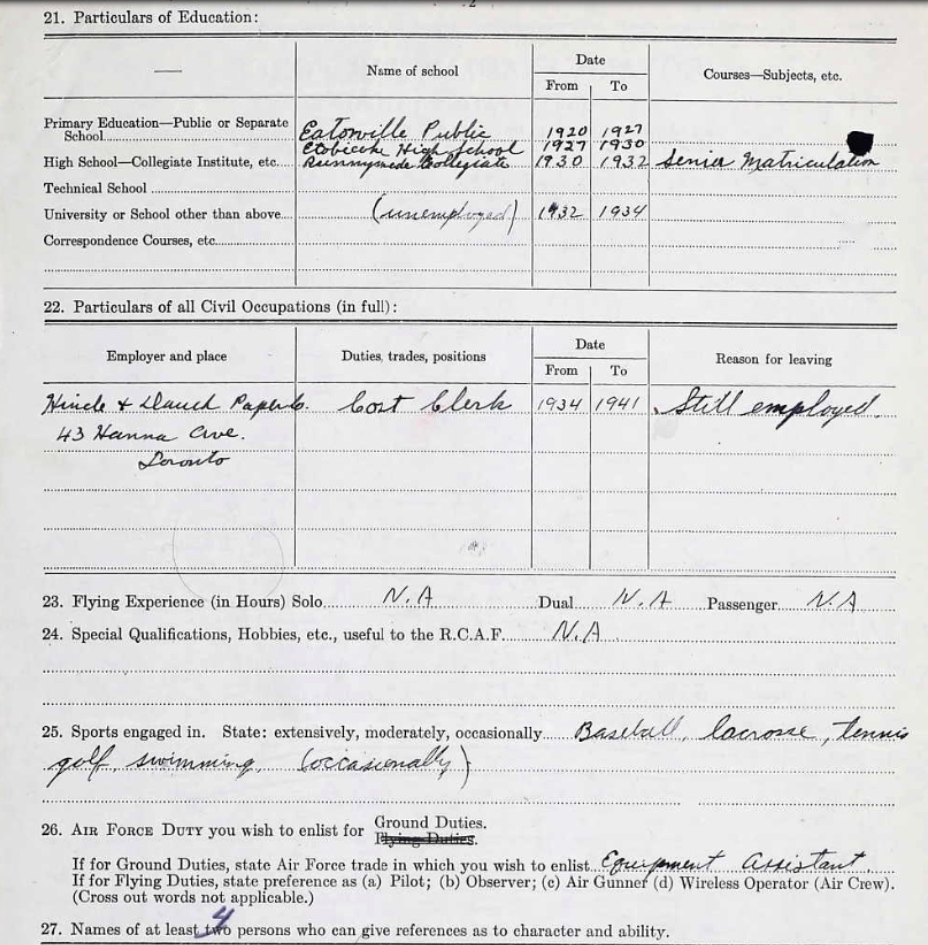 2
21. Particulars of Education:
Name of school Date Courses—Subjects, etc.
From To
Primary Education—Public or Separate
School Eatonville Public 1920 1927
Etobicoke High School 1927 1930
High School—Collegiate Institute, etc. Runnymede Collegiate 1930 1932 Senior Matriculation
Technical School
University or School other than above (unemployed) 1932 1934
Correspondence Courses, etc.
22. Particulars of all Civil Occupations (in full):
Employer and place Duties, trades, positions Date Reason for leaving
From To
Hinde & Dauch Paper Co. Cost Clerk 1934 1941 Still employed.
43 Hanna Ave.
Toronto
23. Flying Experience (in Hours) Solo N.A Dual N.A Passenger N.A
24. Special Qualifications, Hobbies, etc., useful to the R.C.A.F. N.A
25. Sports engaged in. State: extensively, moderately, occasionally Baseball, lacrosse, tennis
golf, swimming. (occasionally)
26. AIR FORCE DUTY you wish to enlist for Ground Duties.
Flying Duties.
If for Ground Duties, state Air Force trade in which you wish to enlist Equipment Assistant
If for Flying Duties, state preference as (a) Pilot; (b) Observer; (c) Air Gunner (d) Wireless Operator (Air Crew).
(Cross out words not applicable.)
4
27. Names of at least two persons who can give references as to character and ability.